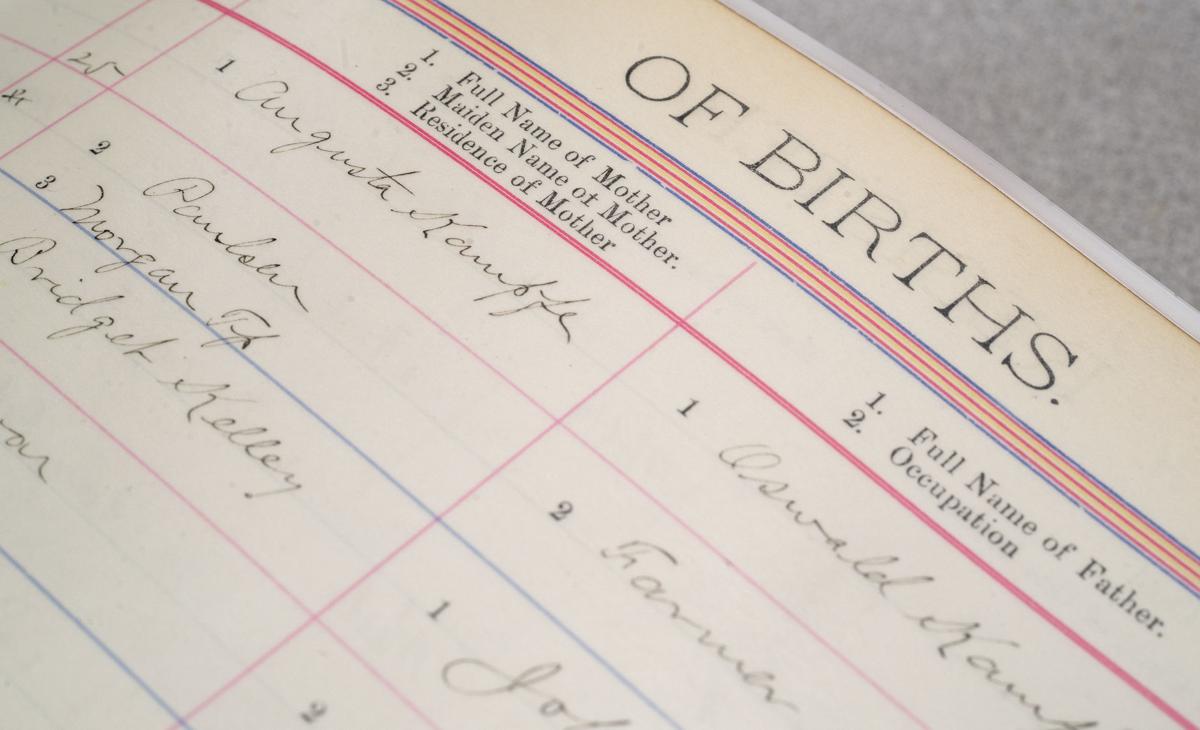 OF BIRTHS.
1. Full Name of Mother
2. Maiden Name of Mother.
3. Residence of Mother
1. Full Name of Father.
2. Occupation
25
1 Augusta Kampfe
2 Paulsen
3 Morgan Tp
Bridget Kelley
1 Oswald
2 Farmer
1
2